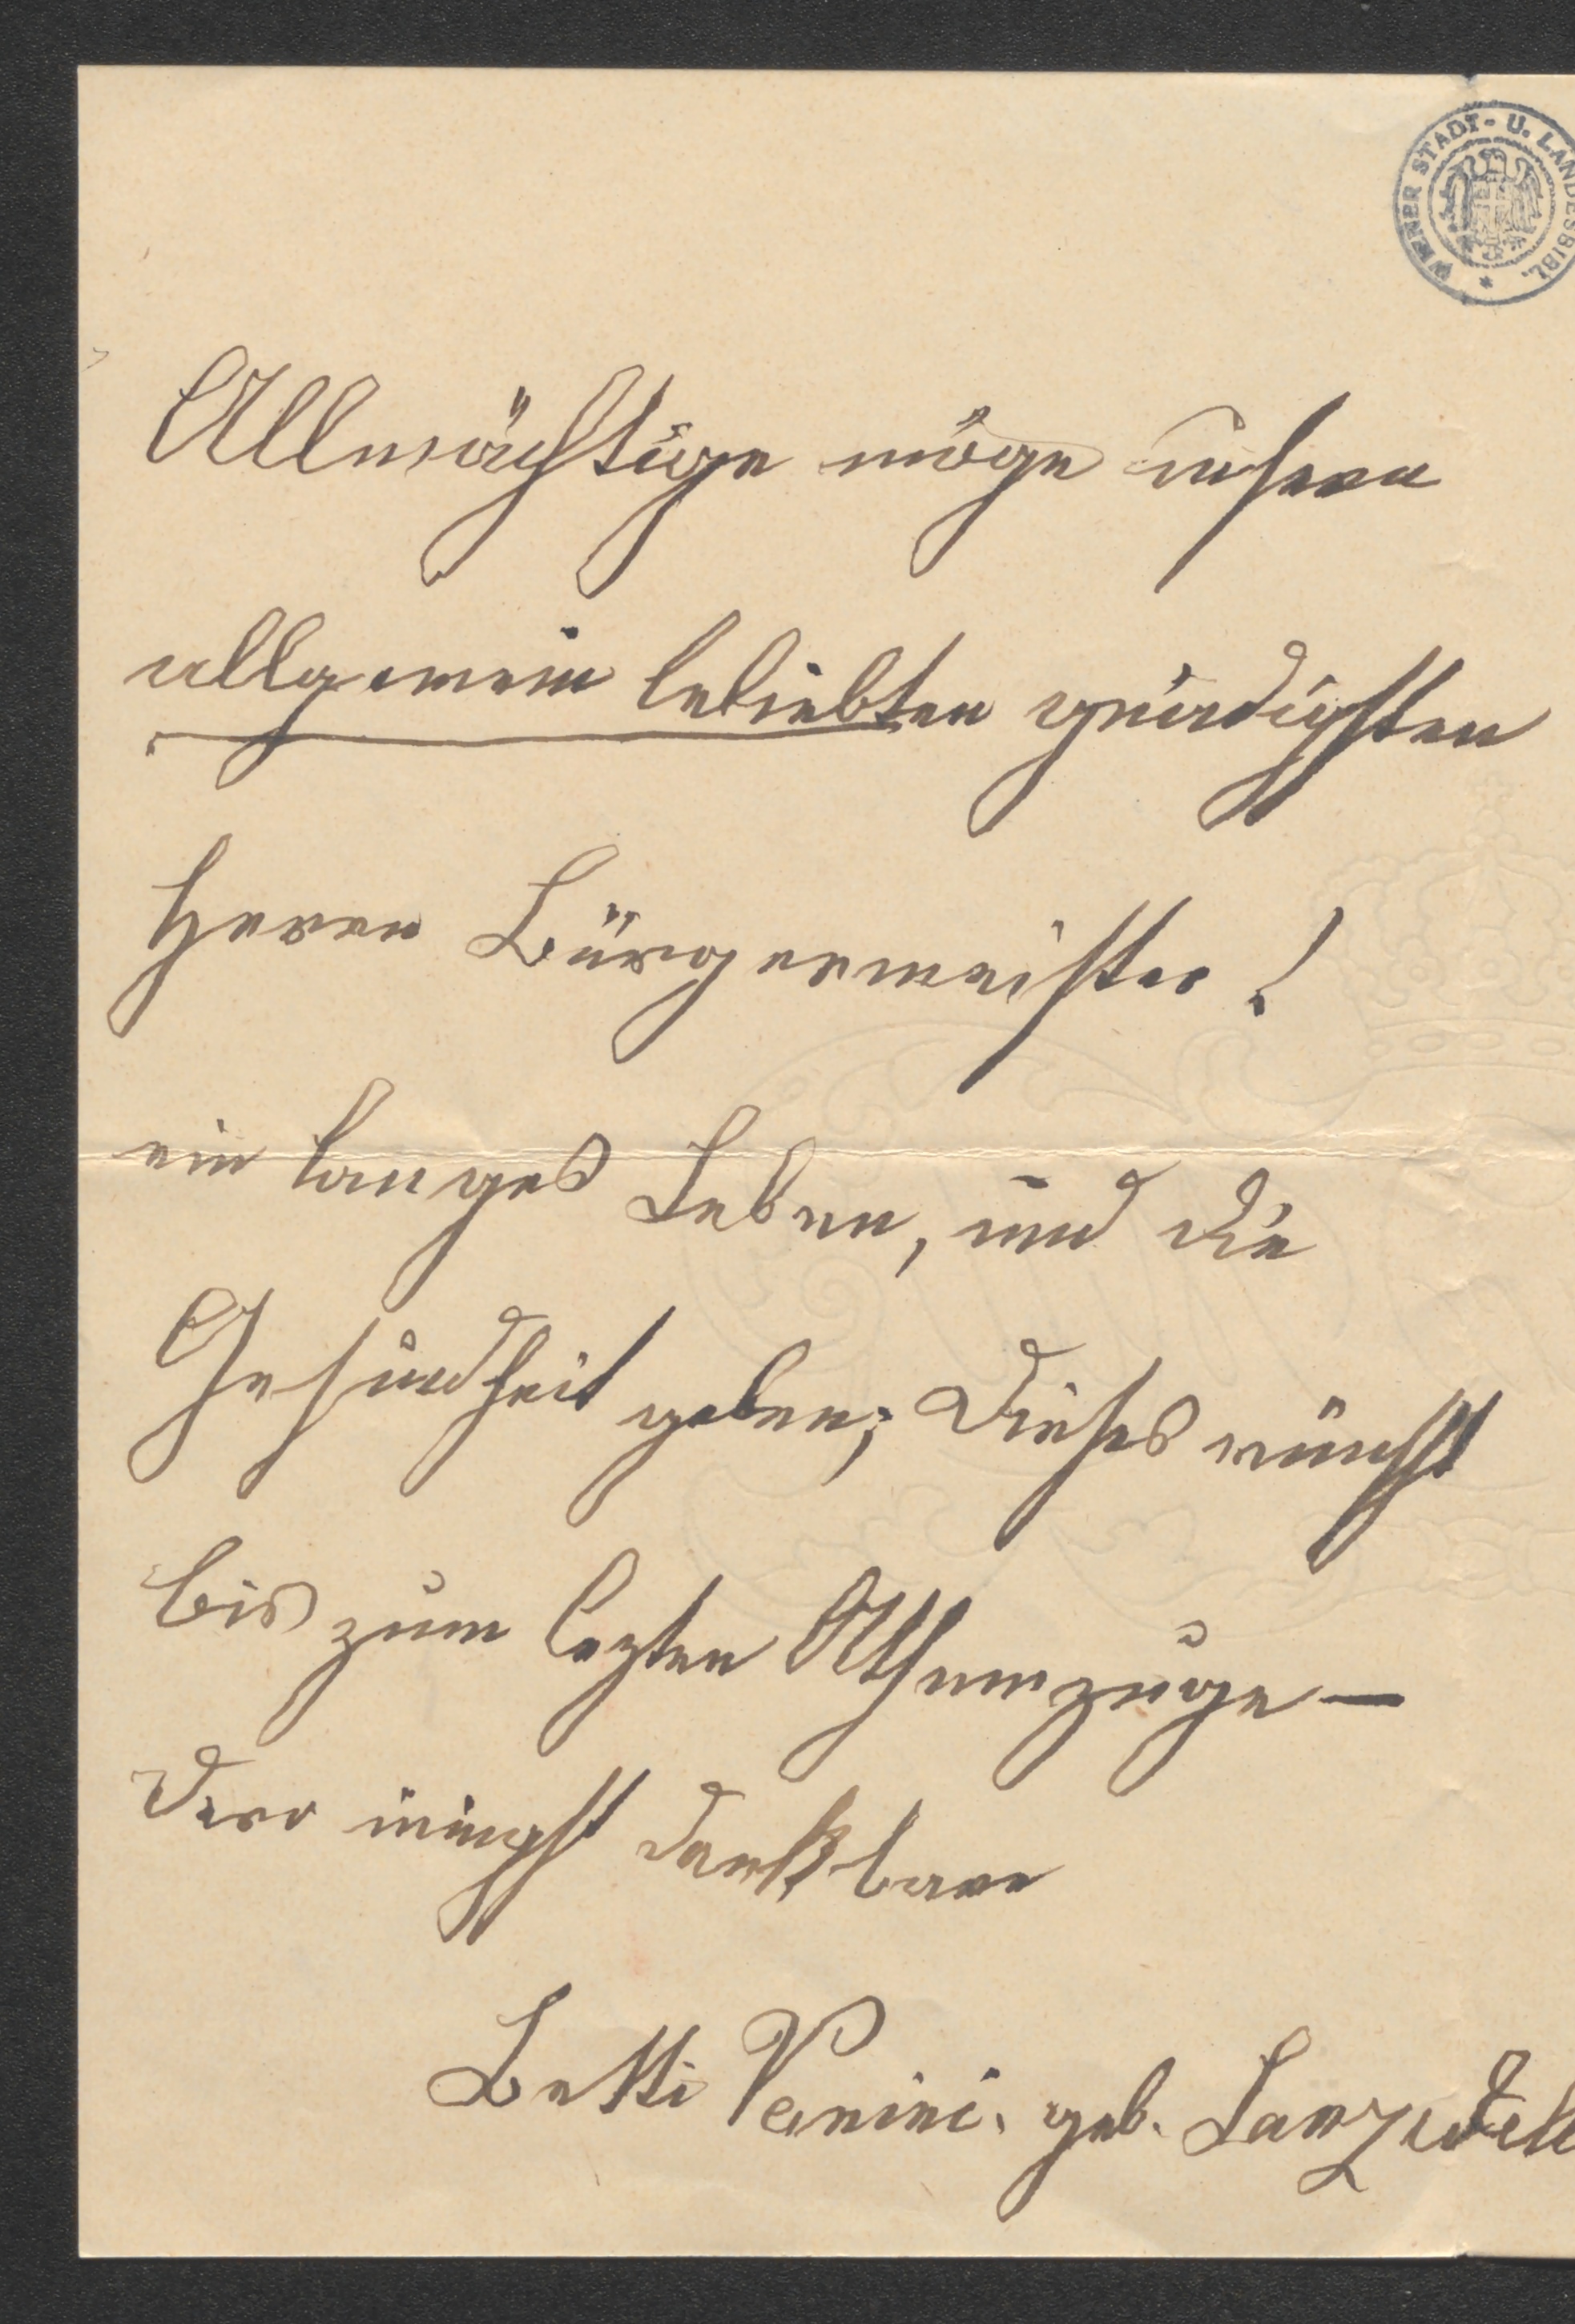 WIENER STADT- U. LANDESBIBL.
Allmächtige möge unsern
allgemein beliebten gnädigsten
Herrn Bürgermeister!
ein langes Leben, und die
Gesundheit geben; dieses wünscht
bis zum lezten Athemzuge—
Dero innigst dankbare
Betti Vanini. geb.